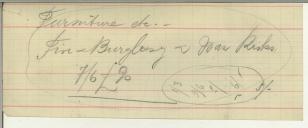 Furniture etc. -
Fire - Burglary & War Risks
7/6 £%
5/-